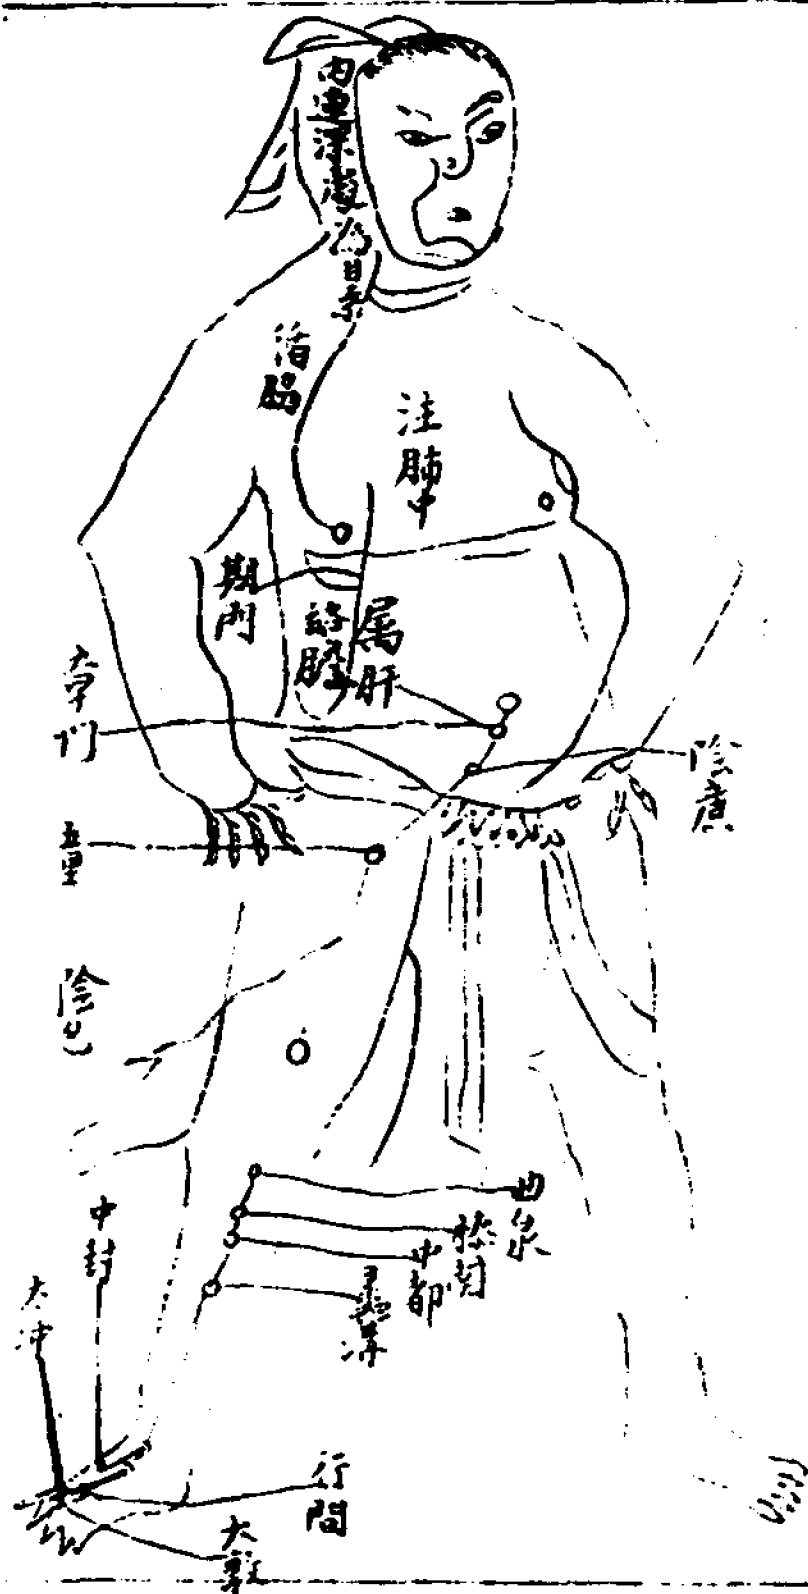 為目系
注肺中
期門
属肝
章門
陰廉
五里
陰包
曲泉
膝関
中都
蠡溝
中封
太冲
行間
大敦